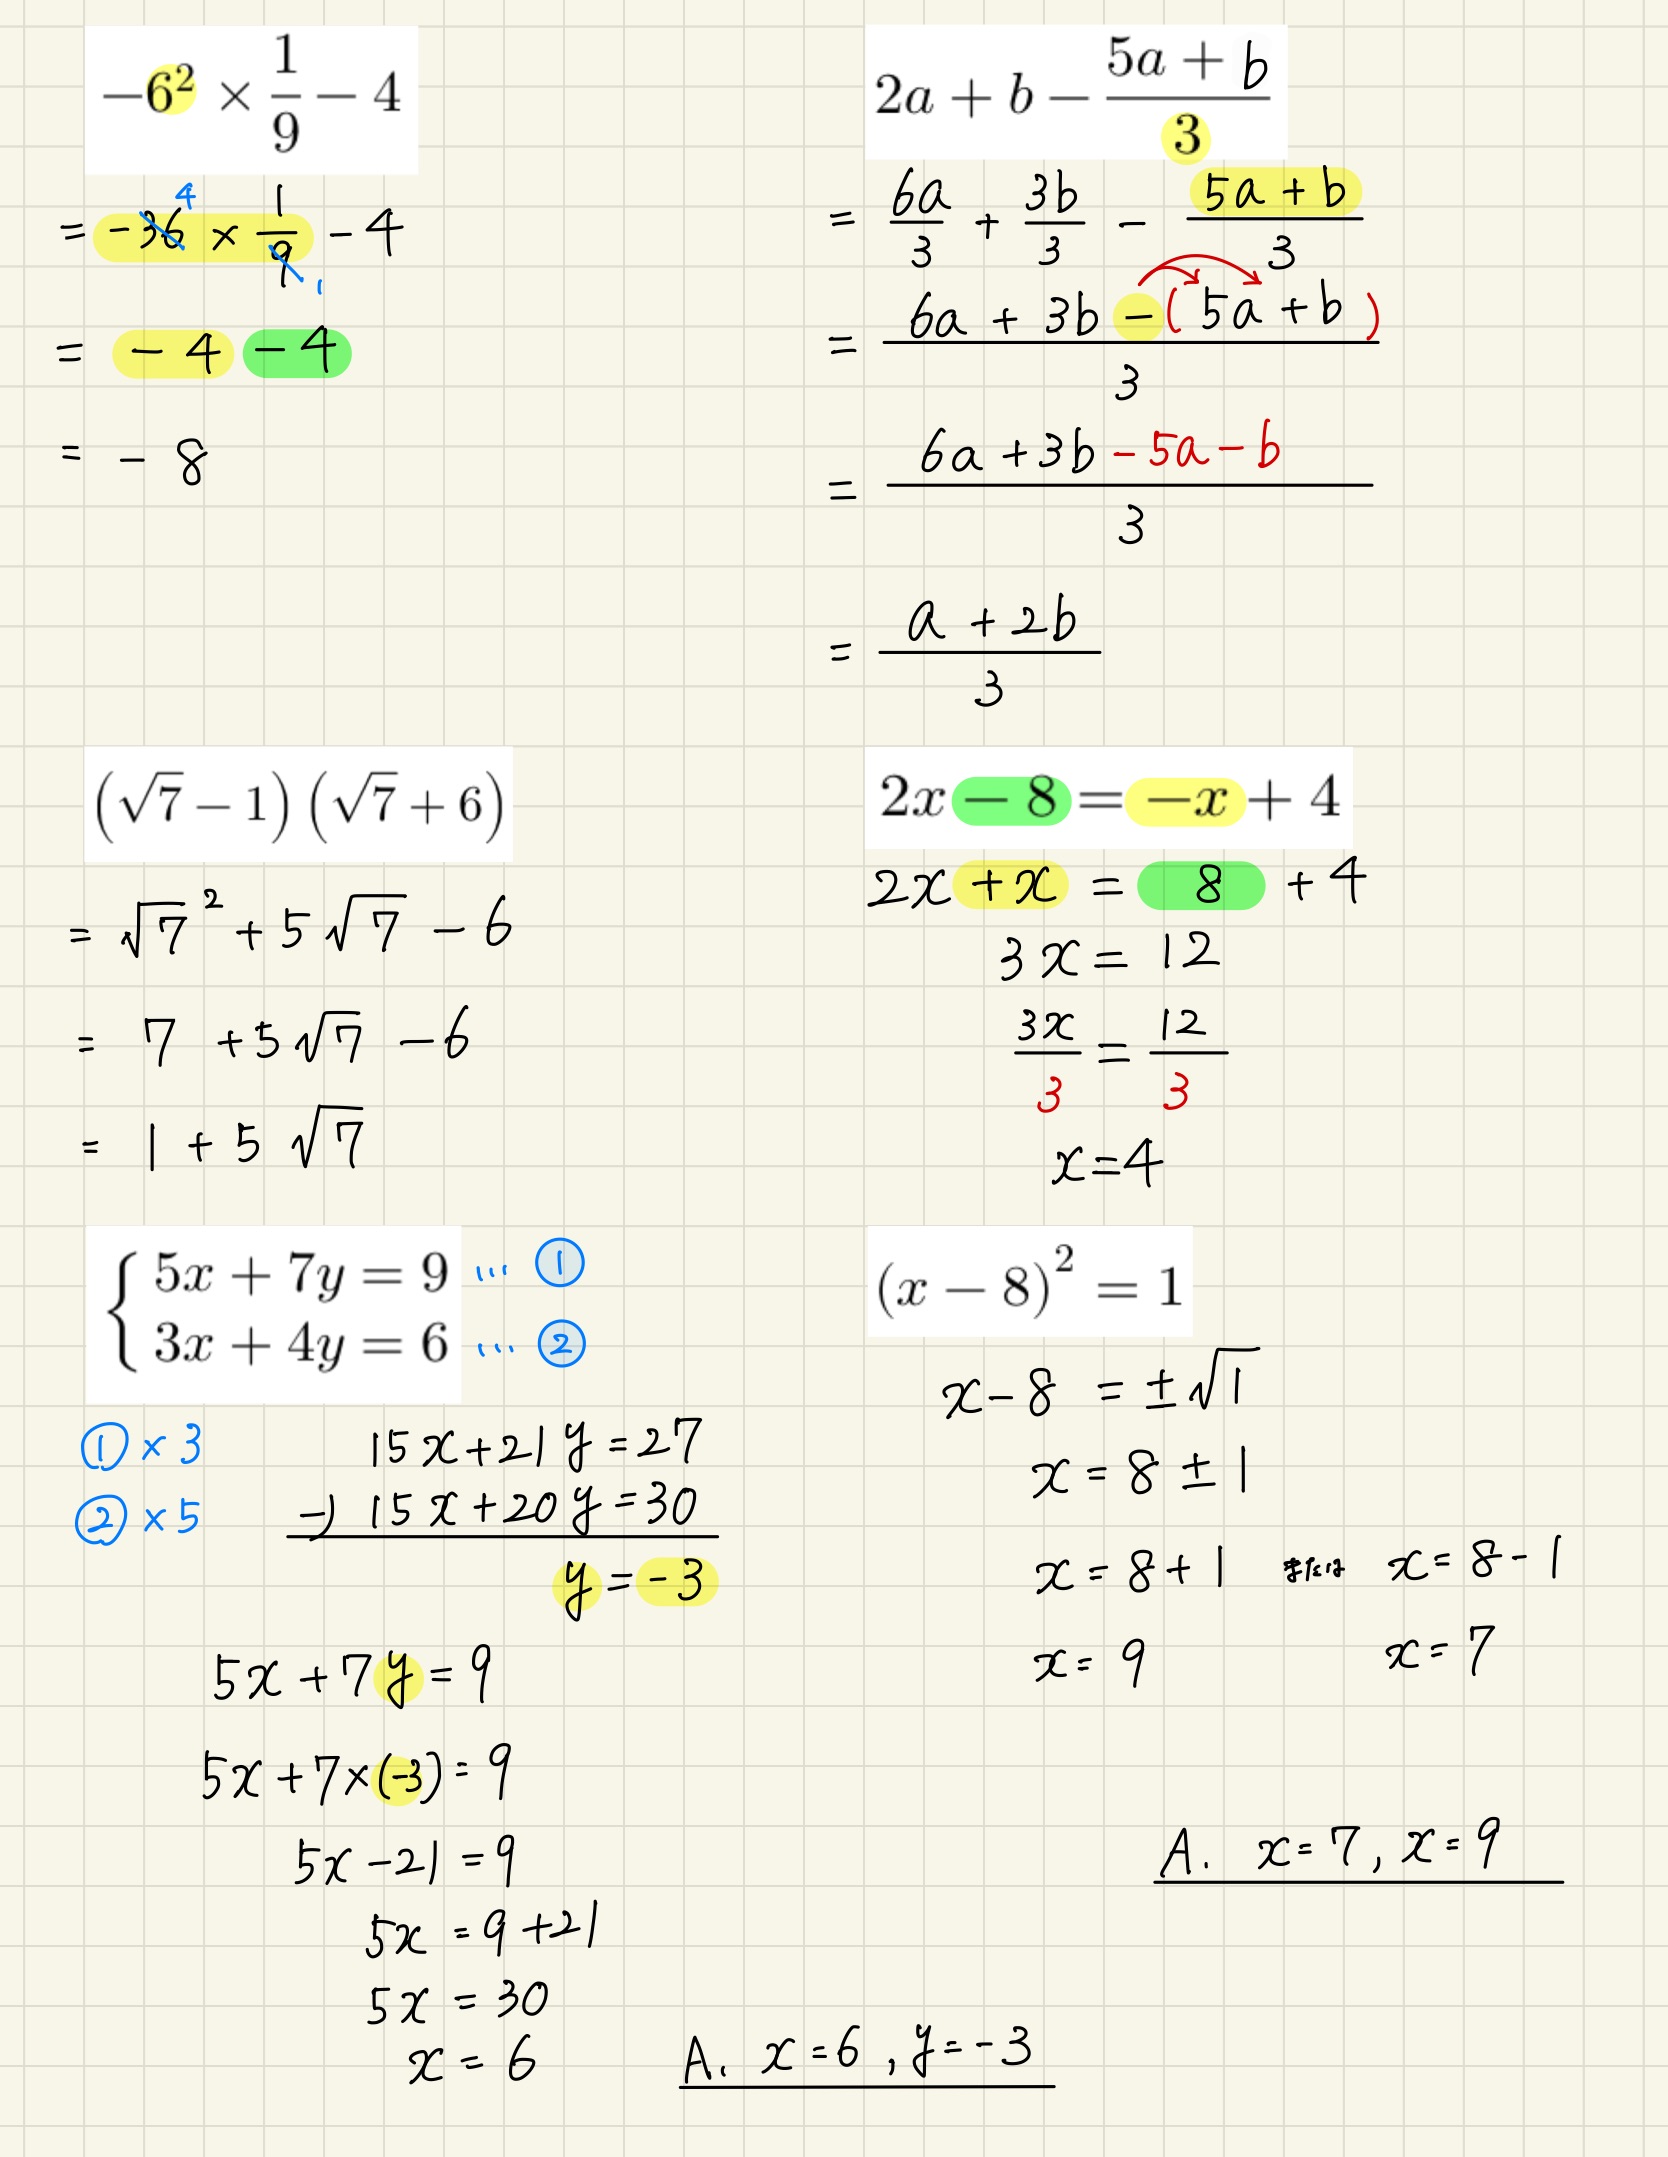 −6² × 1/9 − 4
= −36 × 1/9 − 4
4
1
= −4 −4
= −8
2a + b − (5a + b)/3
= 6a/3 + 3b/3 − (5a + b)/3
= (6a + 3b − (5a + b))/3
= (6a + 3b − 5a − b)/3
= (a + 2b)/3
(√7 − 1)(√7 + 6)
= √7² + 5√7 − 6
= 7 + 5√7 − 6
= 1 + 5√7
2x − 8 = −x + 4
2x + x = 8 + 4
3x = 12
3x/3 = 12/3
x = 4
{ 5x + 7y = 9 … ①
3x + 4y = 6 … ②
① × 3 15x + 21y = 27
② × 5 −) 15x + 20y = 30
y = −3
5x + 7y = 9
5x + 7 × (−3) = 9
5x − 21 = 9
5x = 9 + 21
5x = 30
x = 6
A. x = 6 , y = −3
(x − 8)² = 1
x − 8 = ±√1
x = 8 ± 1
x = 8 + 1 または x = 8 − 1
x = 9 x = 7
A. x = 7 , x = 9